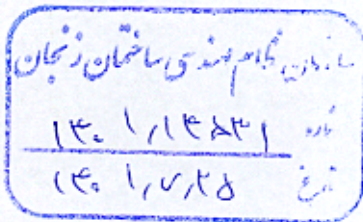 سازمان نظام مهندسی ساختمان زنجان
شماره ۱۴۰۱/۱۴۵۳۱
تاریخ ۱۴۰۱/۷/۲۵